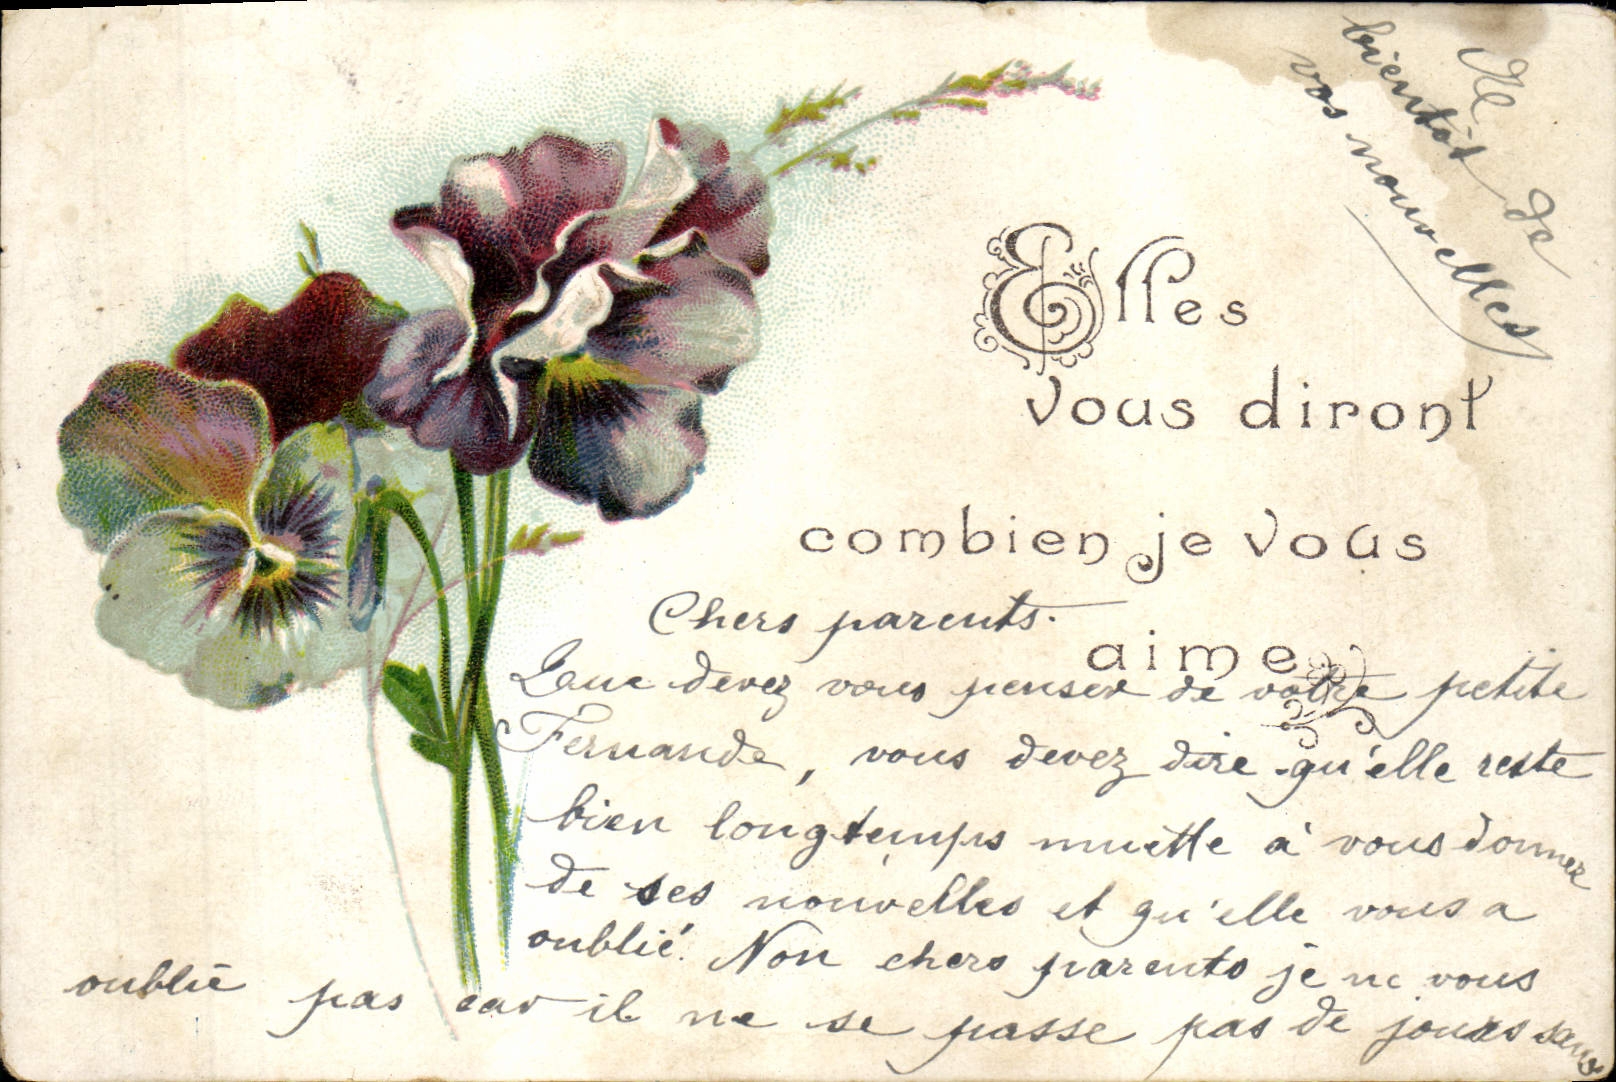 Elles
vous diront
combien je vous
aime
Chers parents.
Que devez vous penser de votre petite
Fernande, vous devez dire qu'elle reste
bien longtemps muette à vous donner
de ses nouvelles et qu'elle vous a
oublié. Non chers parents je ne vous
oublie pas car il ne se passe pas de jours sans
A
bientôt de
vos nouvelles